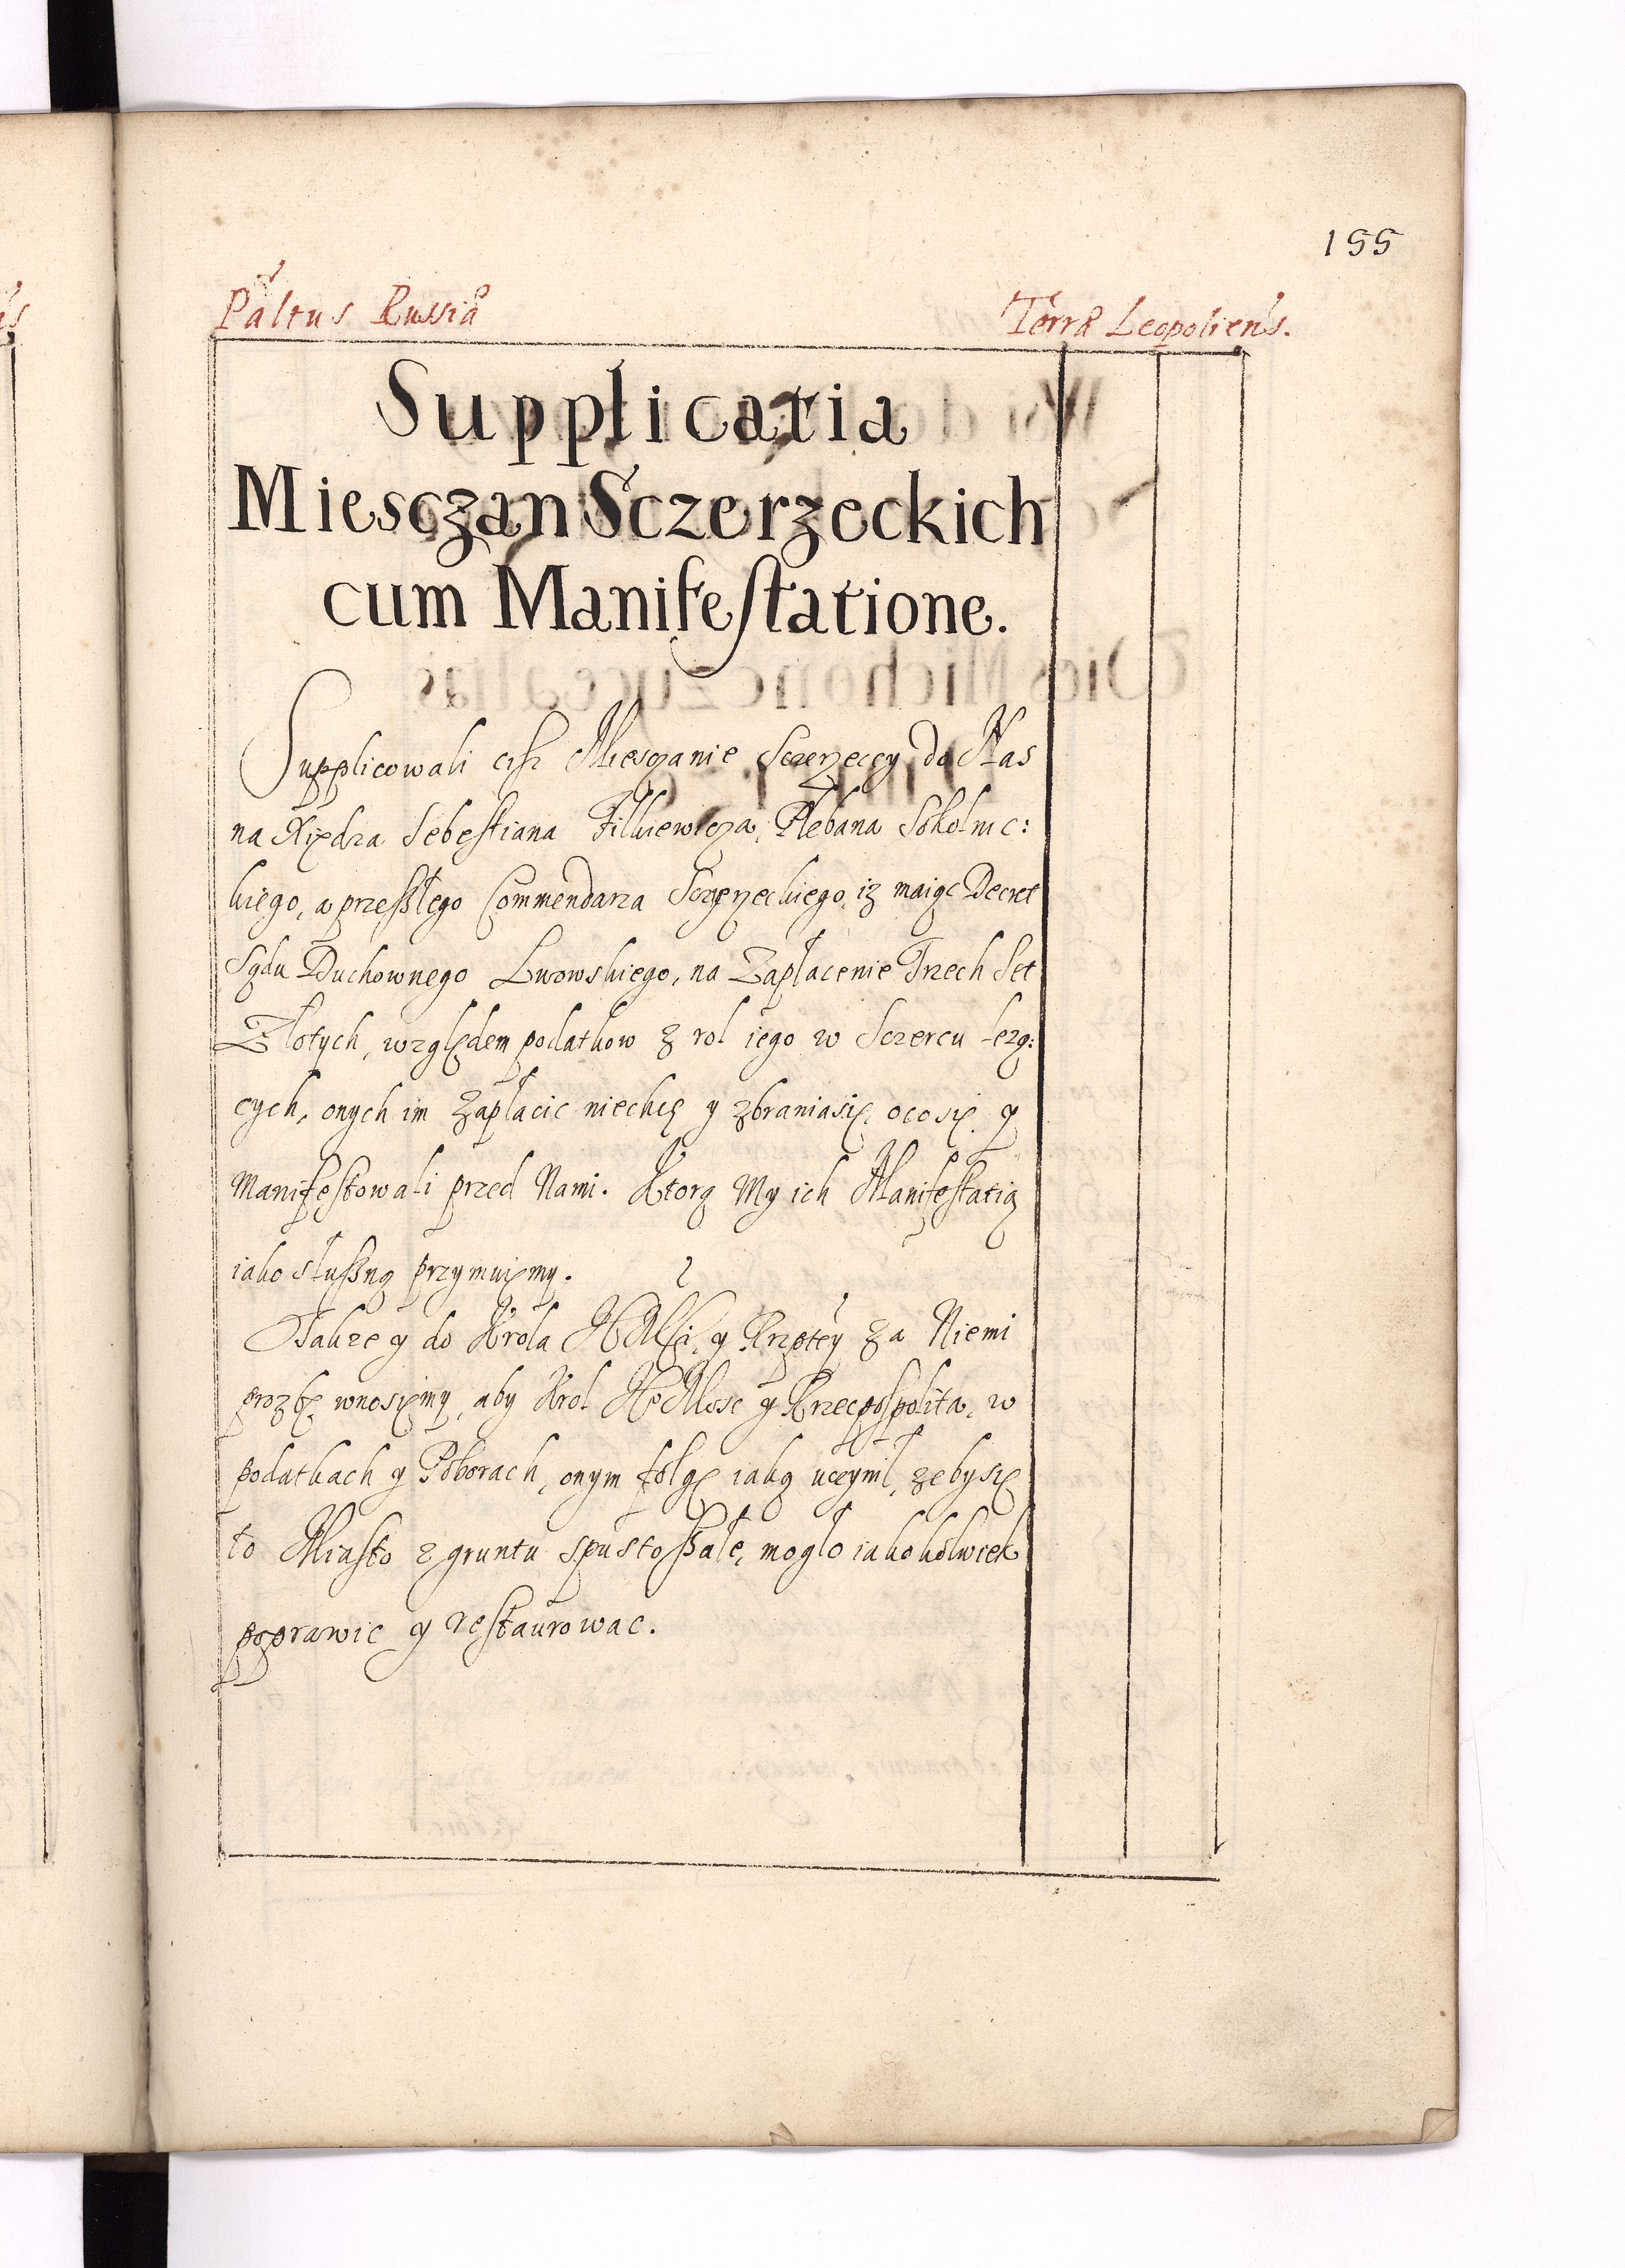 155
Păltus Russiæ
Terræ Leopolien's.
Supplicatia
Miesczan Sczerzeckich
cum Manifestatione.
Supplicowali ciż Miesczanie Sczerzeccy do Nas
na Xiędza Sebestiana Filkiewicza, Plebana Sokolnic:
kiego, a przeszłego Commendarza Sczerzeckiego, iz maiąc Decret
Sądu Duchownego Lwowskiego, na Zapłacenie Trzech Set
Złotych, względem podatkow z rol iego w Sczercu leżą:
cych, onych im zapłacic niechcę y zbraniasię, ocosię y
Manifestowali przed Nami. Ktorą My ich Manifestatią
iako słuszną przymuięmy.
Także y do Krola JKMści, y Rzptey za Niemi
prozbę wnosięmy, aby Krol JKMosc y Rzeczpospolita, w
podatkach y Poborach, onym folgę iaką uczynił, zebysię
to Miasto z gruntu spustoszałe, mogło iakokolwiek
poprawic y restaurowac.